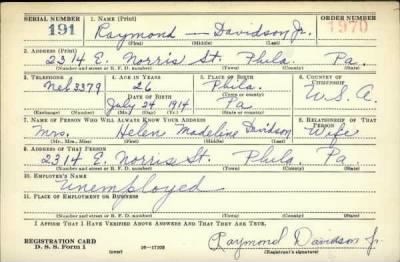 SERIAL NUMBER 1. NAME (Print) ORDER NUMBER
191 Raymond — Davidson Jr. 1970
(First) (Middle) (Last)
2. ADDRESS (Print)
2314 E. Norris St. Phila. Pa.
(Number and street or R. F. D. number) (Town) (County) (State)
3. TELEPHONE 4. AGE IN YEARS 5. PLACE OF BIRTH 6. COUNTRY OF CITIZENSHIP
Neb 3379 26 Phila.
DATE OF BIRTH (Town or county)
July 24 1914 Pa U.S.A.
(Exchange) (Number) (Mo.) (Day) (Yr.) (State or country)
7. NAME OF PERSON WHO WILL ALWAYS KNOW YOUR ADDRESS 8. RELATIONSHIP OF THAT PERSON
Mrs. Helen Madeline Davidson Wife
(Mr., Mrs., Miss) (First) (Middle) (Last)
9. ADDRESS OF THAT PERSON
2314 E. Norris St. Phila. Pa.
(Number and street or R. F. D. number) (Town) (County) (State)
10. EMPLOYER'S NAME
Unemployed
11. PLACE OF EMPLOYMENT OR BUSINESS
(Number and street or R. F. D. number) (Town) (County) (State)
I AFFIRM THAT I HAVE VERIFIED ABOVE ANSWERS AND THAT THEY ARE TRUE.
REGISTRATION CARD
D. S. S. Form 1 (over) 16—17105 Raymond Davidson Jr.
(Registrant's signature)